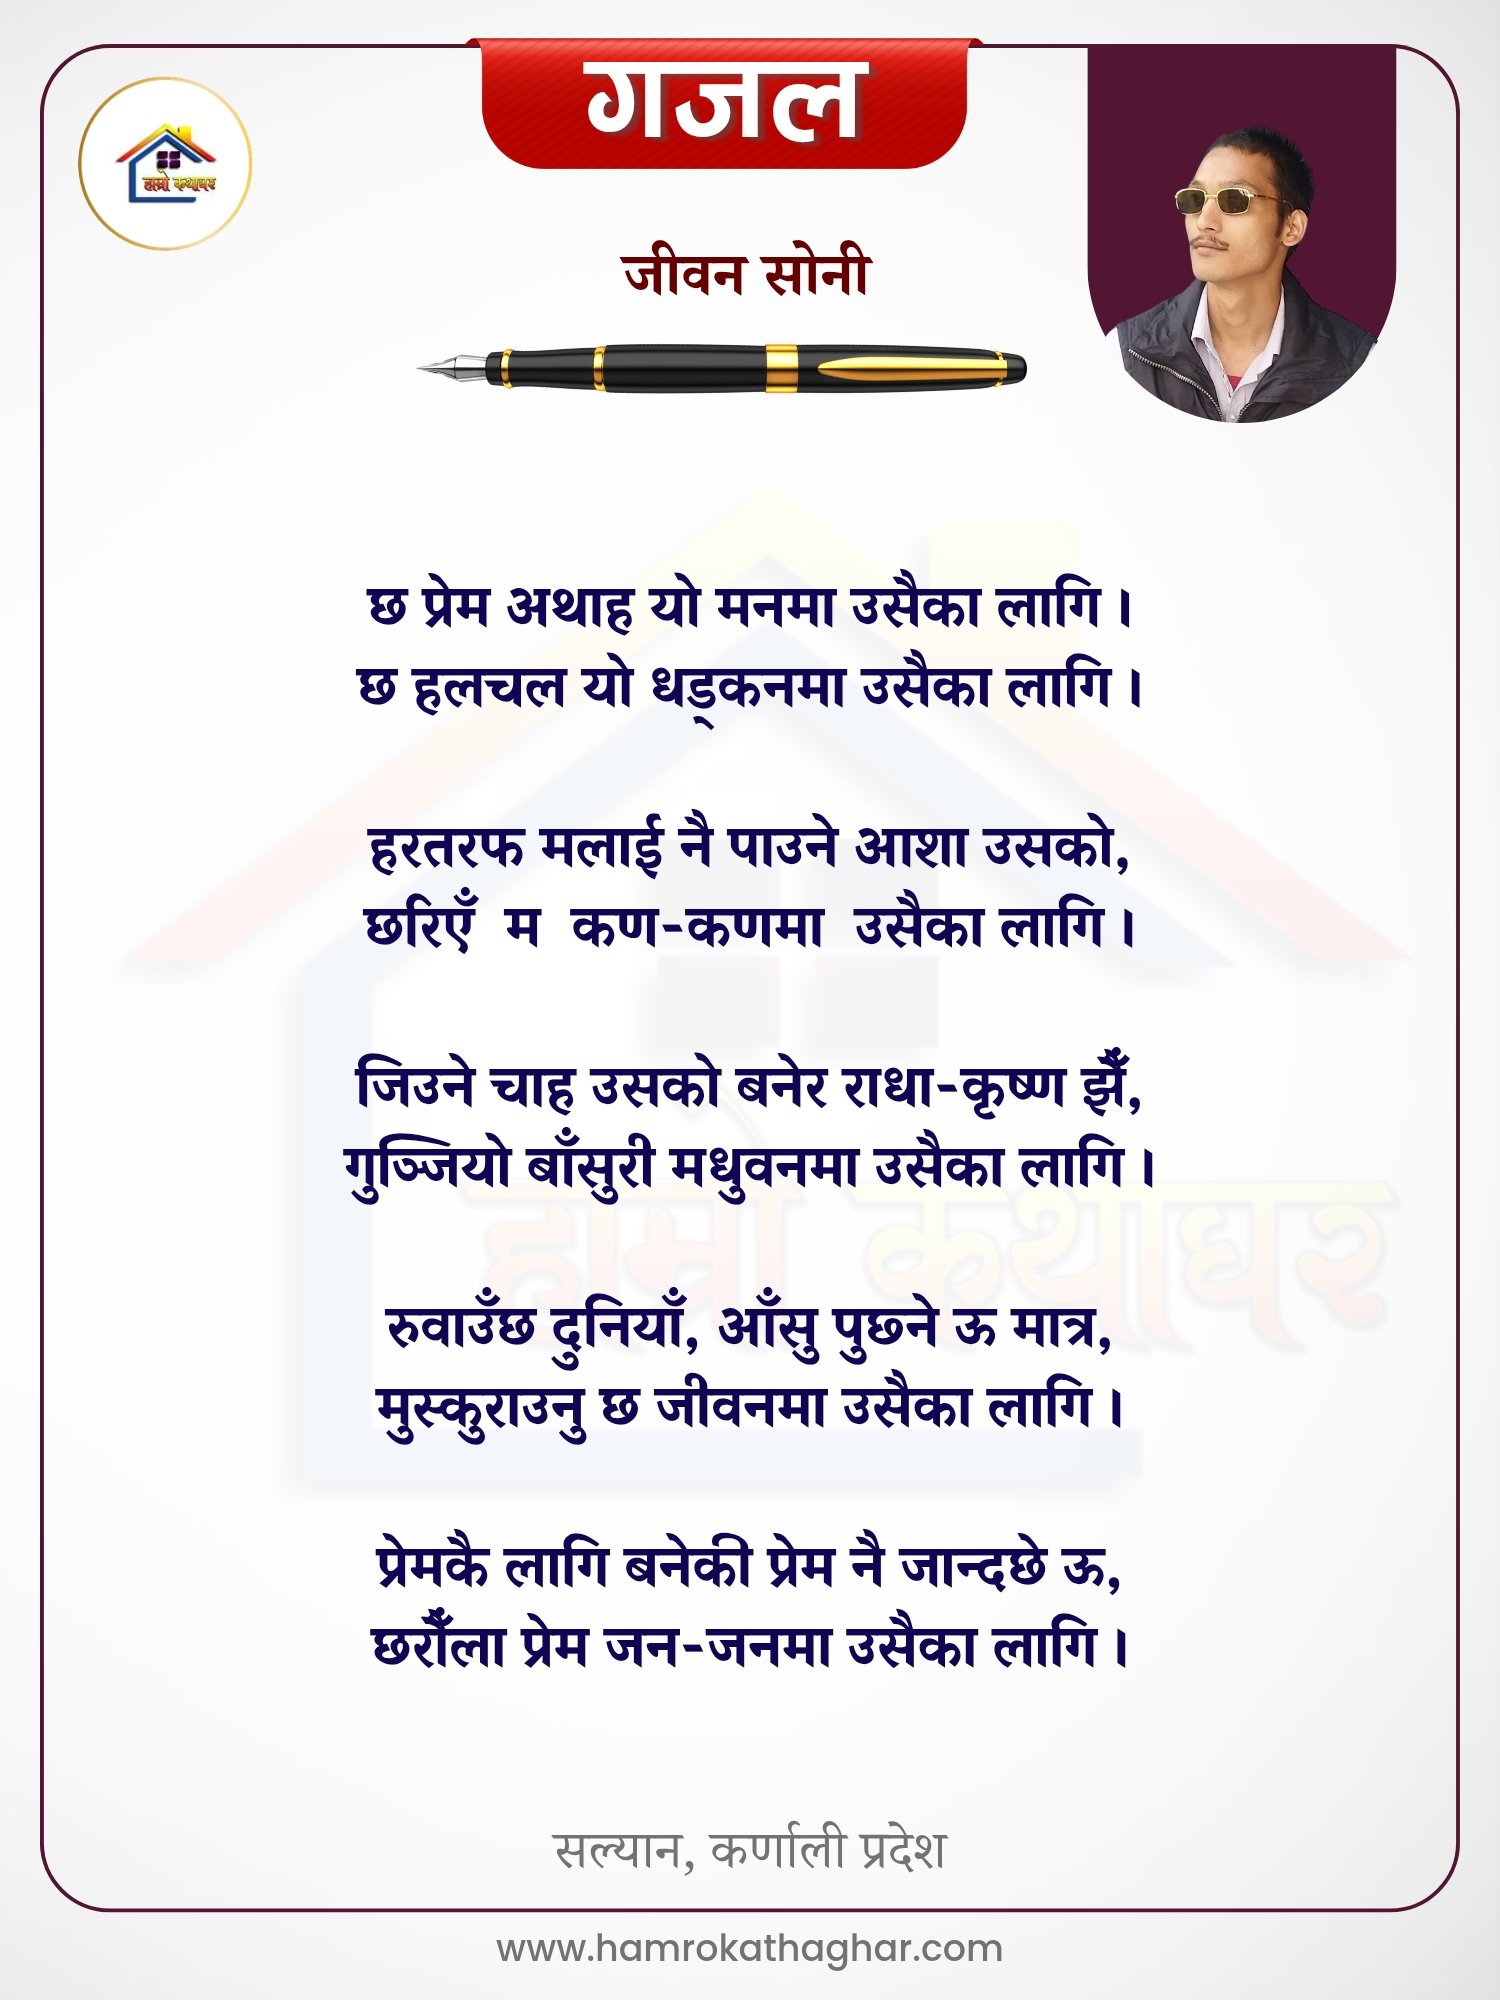 गजल
हाम्रो कथाघर
जीवन सोनी
छ प्रेम अथाह यो मनमा उसैका लागि ।
छ हलचल यो धड्कनमा उसैका लागि ।
हरतरफ मलाई नै पाउने आशा उसको,
छरिएँ म कण-कणमा उसैका लागि ।
जिउने चाह उसको बनेर राधा-कृष्ण झैँ,
गुञ्जियो बाँसुरी मधुवनमा उसैका लागि ।
हाम्रो कथाघर
रुवाउँछ दुनियाँ, आँसु पुछ्ने ऊ मात्र,
मुस्कुराउनु छ जीवनमा उसैका लागि ।
प्रेमकै लागि बनेकी प्रेम नै जान्दछे ऊ,
छरौँला प्रेम जन-जनमा उसैका लागि ।
सल्यान, कर्णाली प्रदेश
www.hamrokathaghar.com